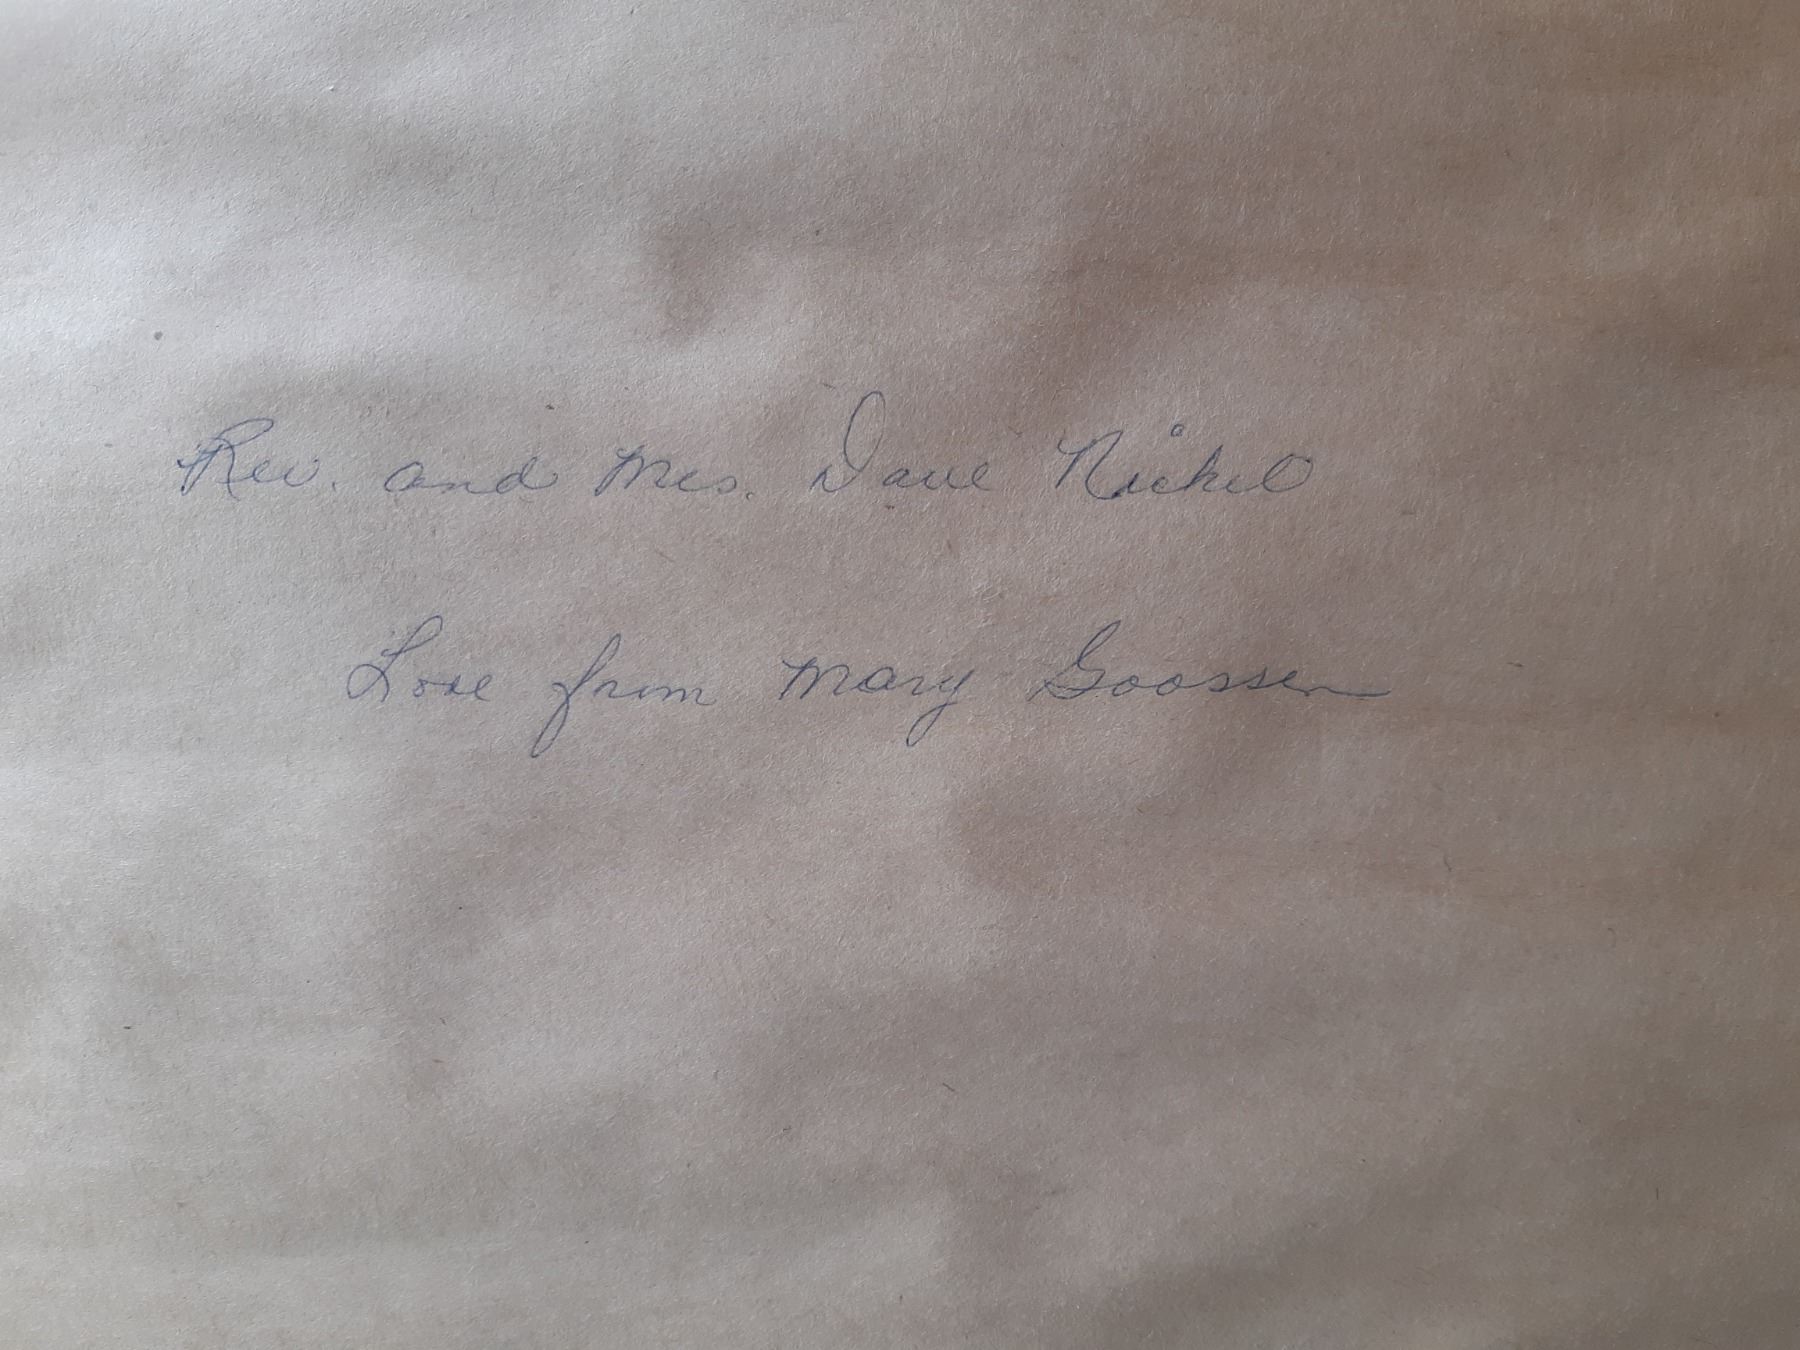 Rev. and Mrs. Dave Nickel
Love from Mary Goossen